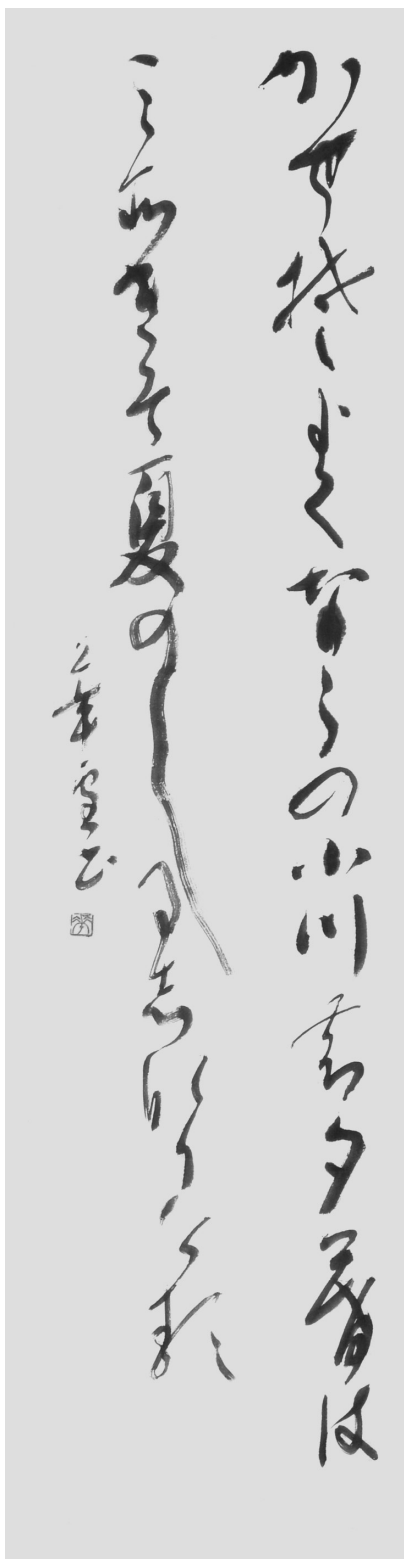 かせそよくならの小川の夕暮は
みそきそ夏のしるし志なりける